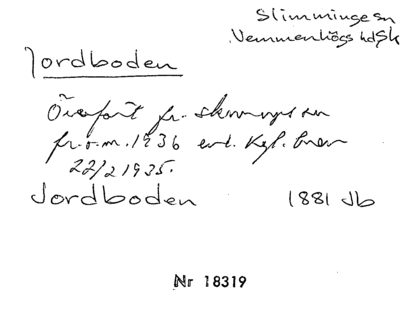 Slimminge sn
Vemmenhögs hd Sk
Jordboden
Överfört fr. Skurups sn
fr.o.m. 1936 enl. Kgl. brev
22/2 1935.
Jordboden 1881 Jb
Nr 18319